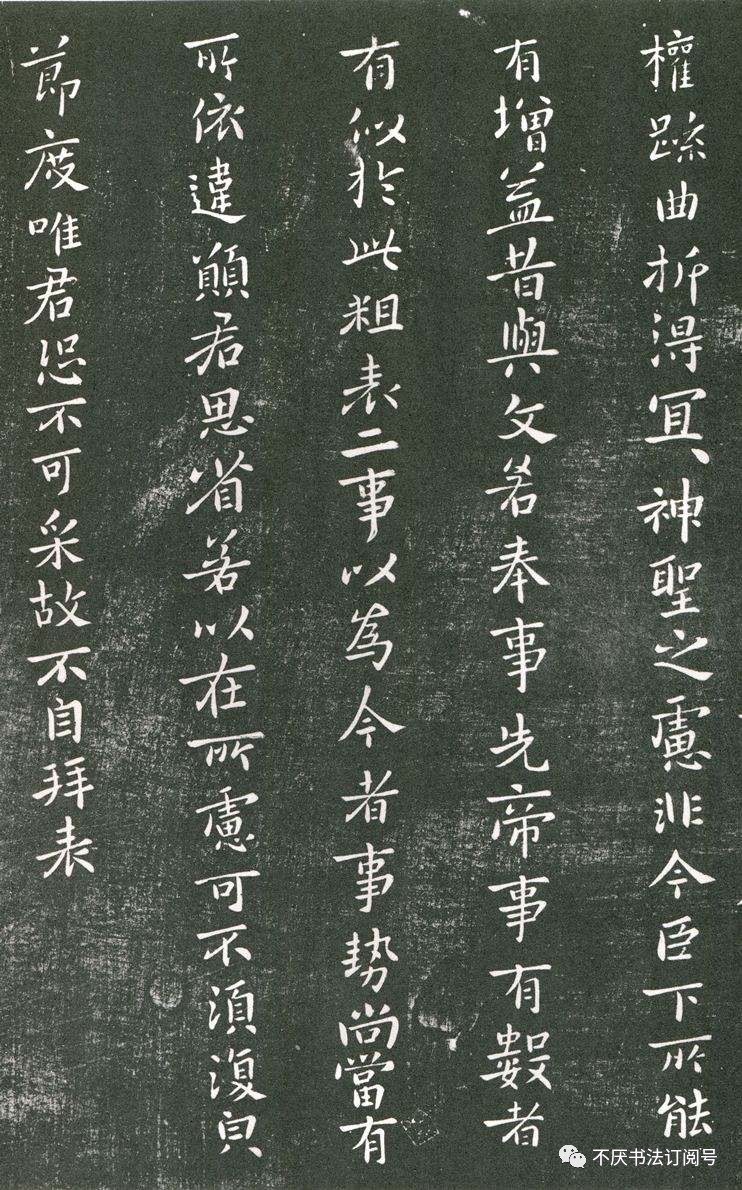 權踈曲折得冝神聖之慮非今臣下所能
有增益昔與文若奉事先帝事有數者
有似於此粗表二事以為今者事勢尚當有
所依違願君思省若以在所慮可不須復皃
莭度唯君恐不可采故不自拜表
不厌书法订阅号